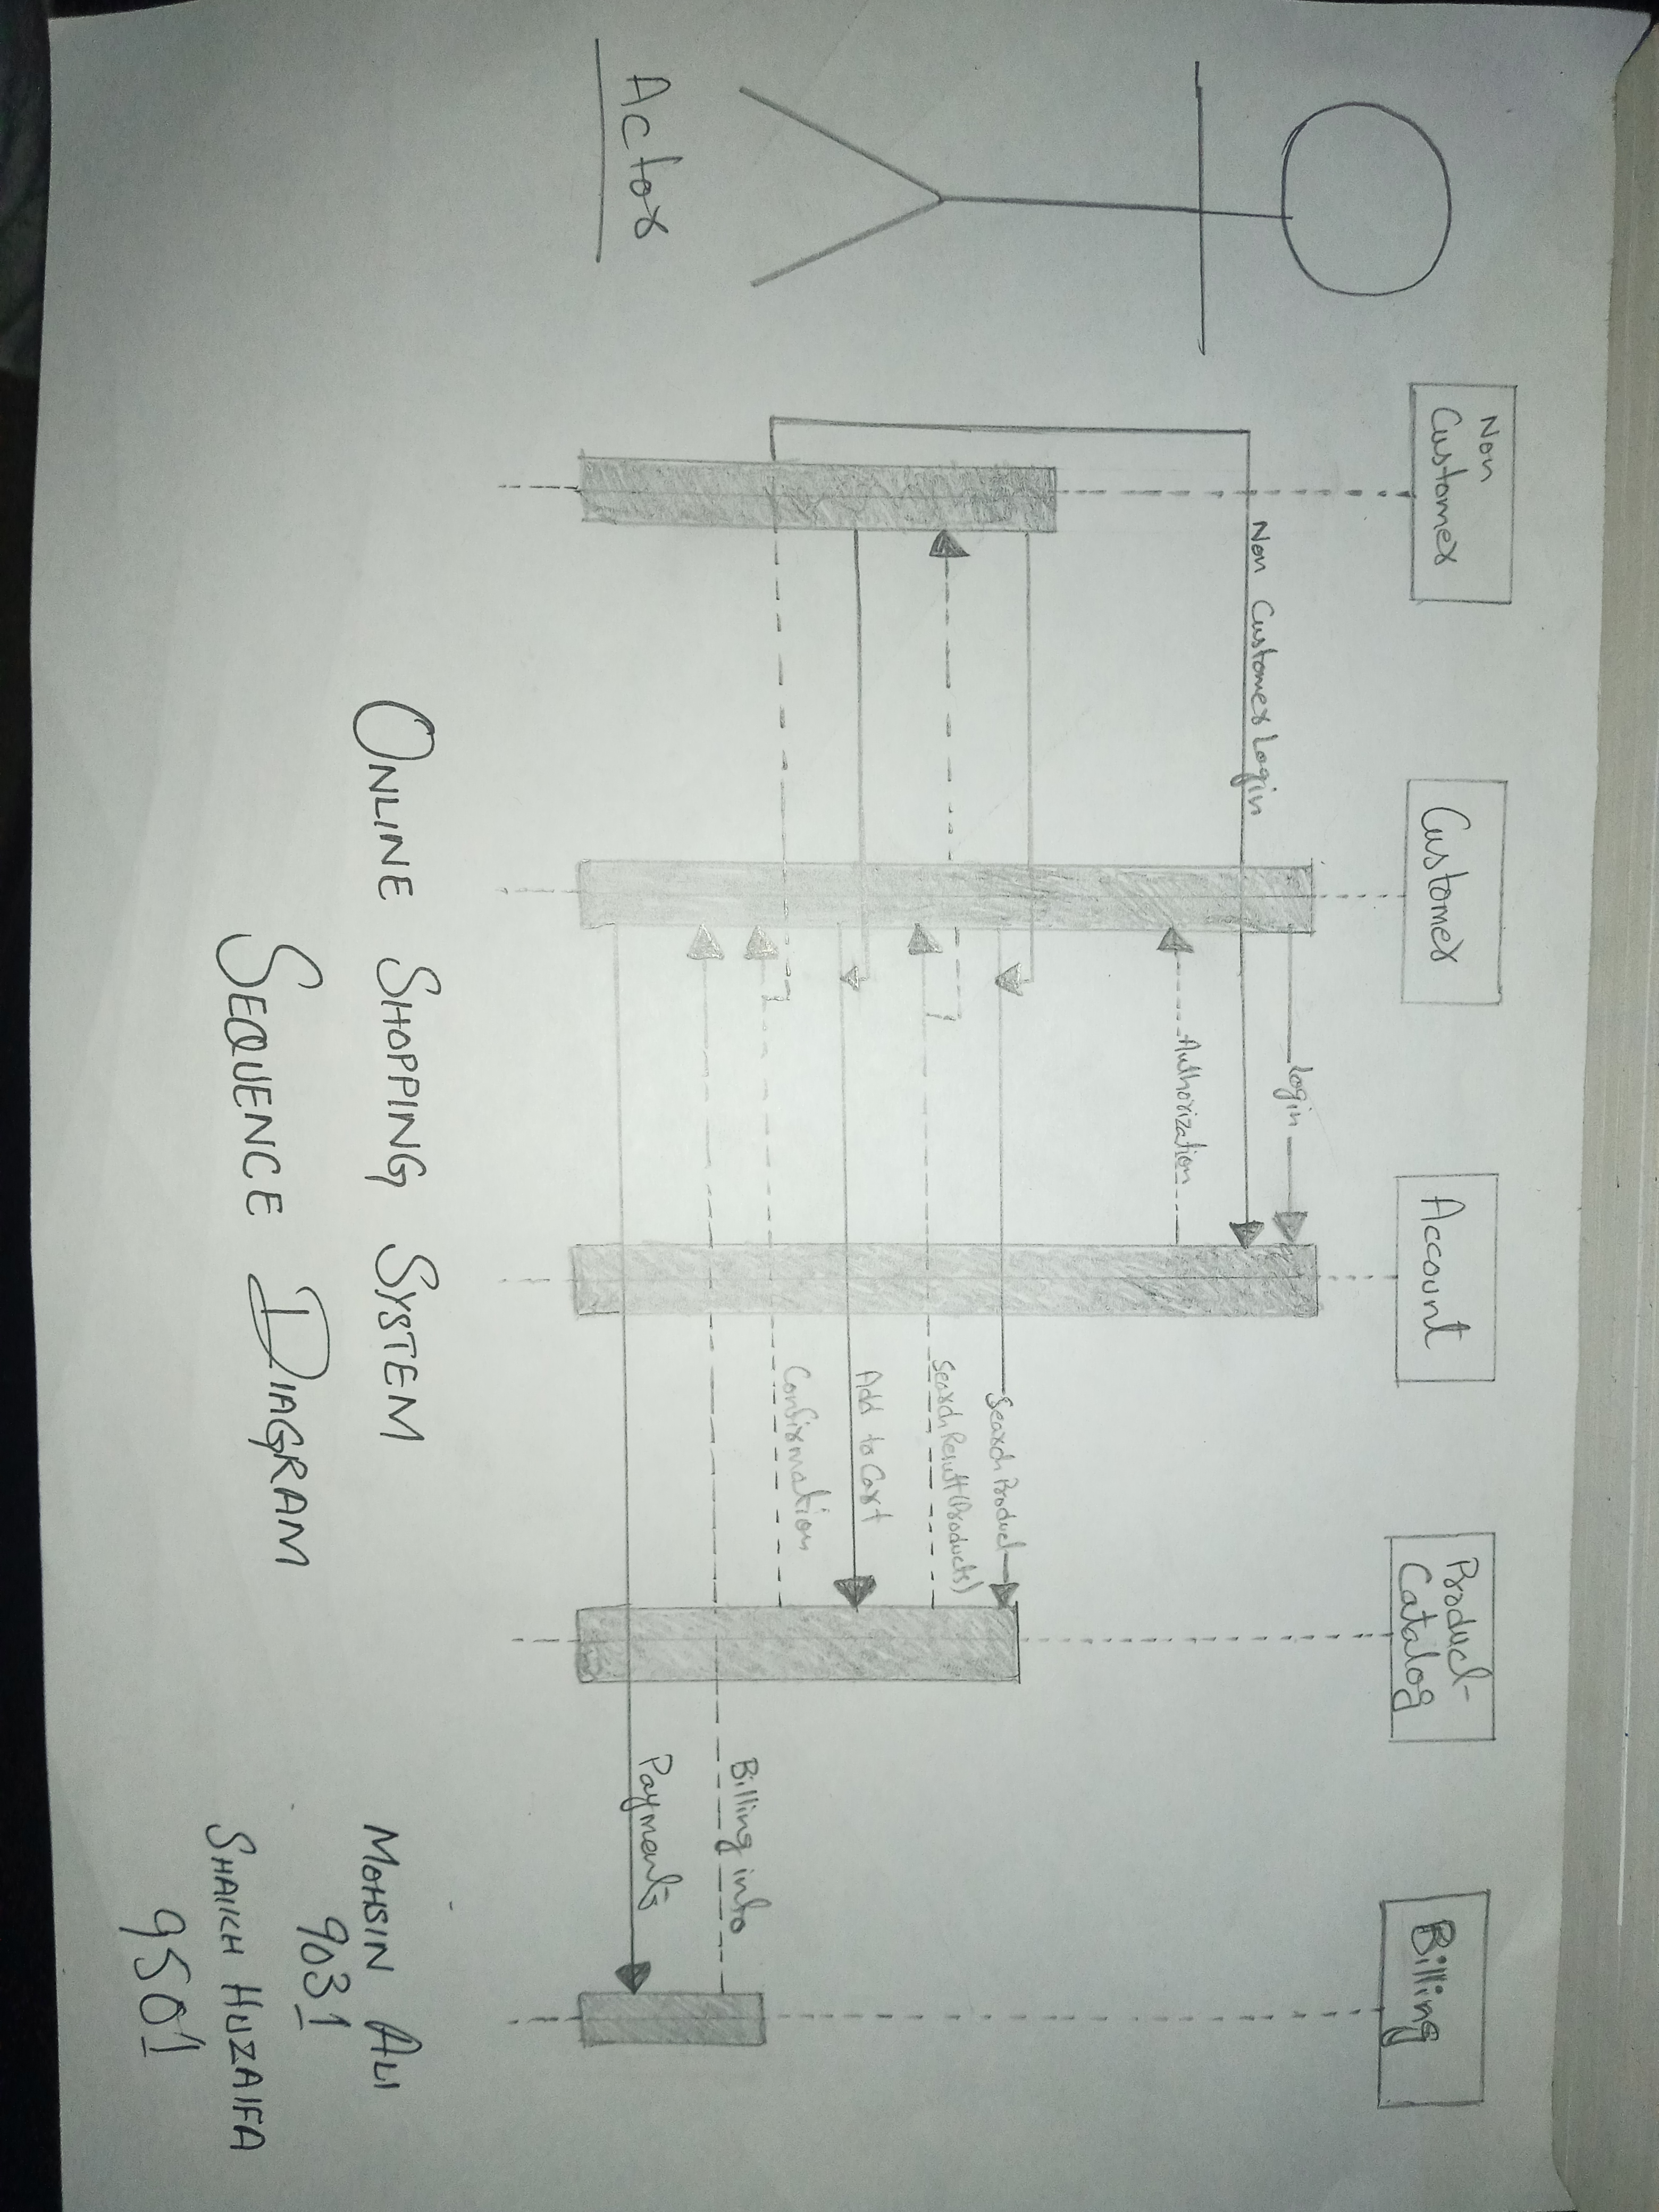 Actor
Non
Customer
Customer
Account
Product-
Catalog
Billing
Login
Non Customer Login
Authorization
Search Product
Search Result (Products)
Add to Cart
Confirmation
Billing into
Payments
ONLINE SHOPPING SYSTEM
SEQUENCE DIAGRAM
MOHSIN ALI
9031
SHAIKH HUZAIFA
9501